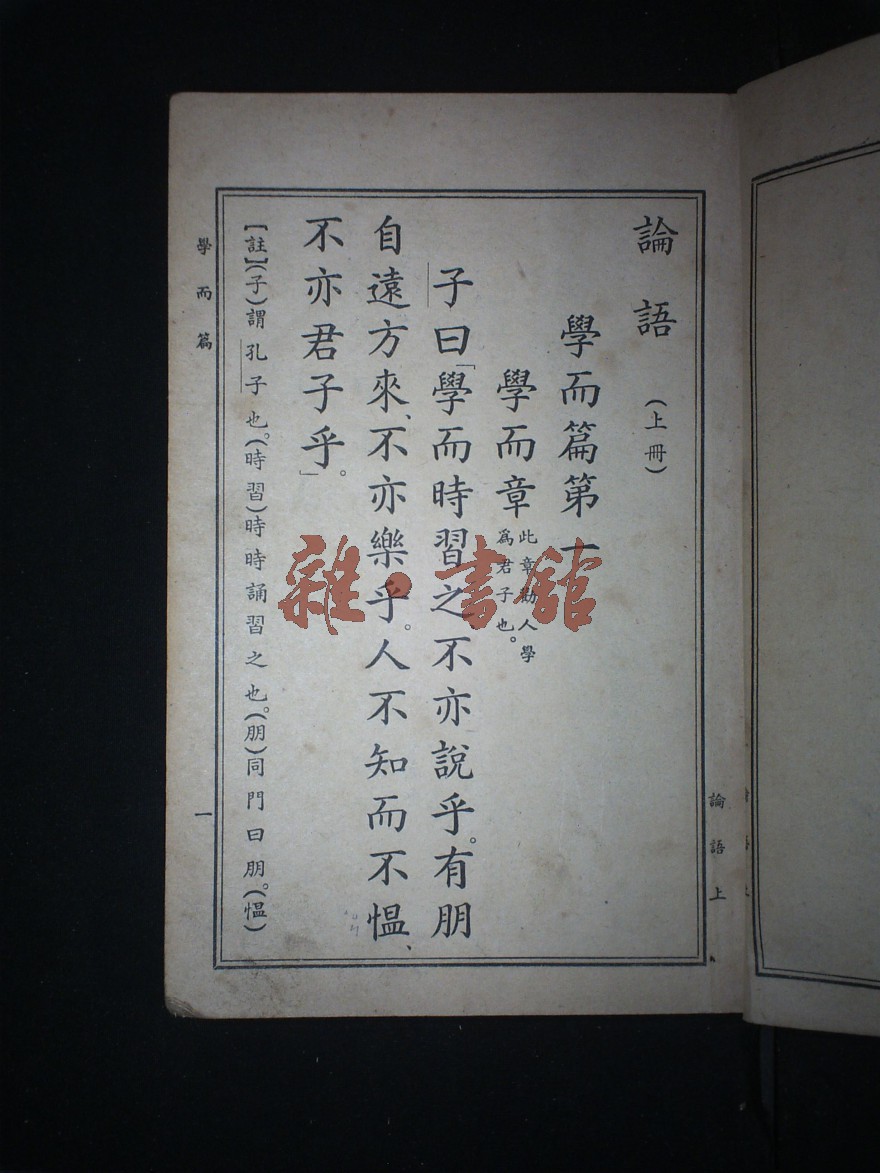 論語(上冊)
學而篇第一
學而章 此章勸人學
爲君子也。
子曰「學而時習之不亦說乎。有朋
自遠方來、不亦樂乎。人不知而不愠、
不亦君子乎。」
【註】(子)謂孔子也。(時習)時時誦習之也。(朋)同門曰朋。(愠)
學而篇 一
論語上
雜·書館